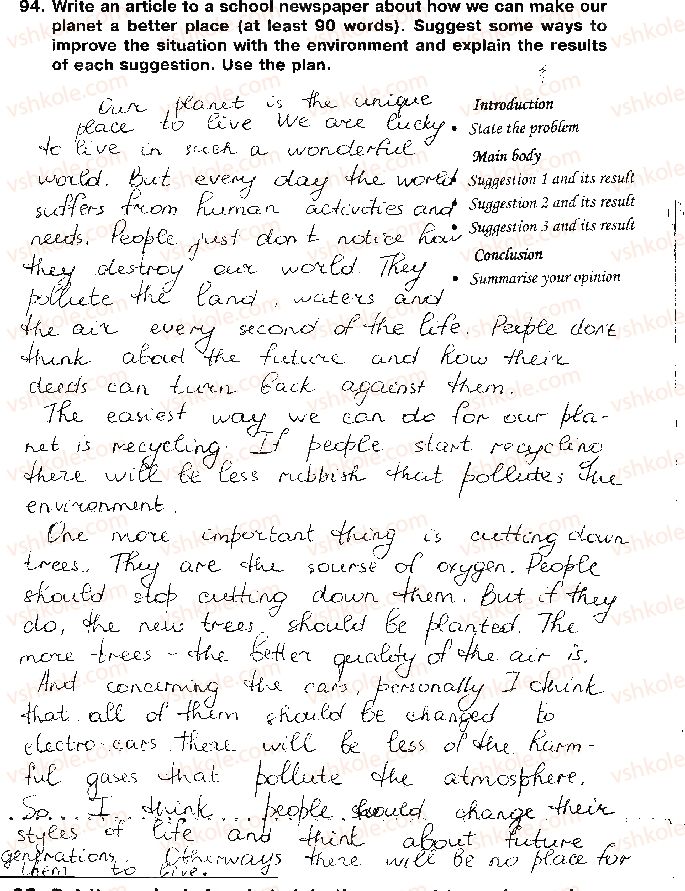 94. Write an article to a school newspaper about how we can make our
planet a better place (at least 90 words). Suggest some ways to
improve the situation with the environment and explain the results
of each suggestion. Use the plan.
Introduction
• State the problem
Main body
• Suggestion 1 and its result
• Suggestion 2 and its result
• Suggestion 3 and its result
Conclusion
• Summarise your opinion
Our planet is the unique
place to live We are lucky
to live in such a wonderful
world. But every day the world
suffers from human activities and
needs. People just don't notice how
they destroy our world. They
pollute the land, waters and
the air every second of the life. People dont
think about the future and how their
deeds can turn back against them.
The easiest way we can do for our pla-
net is recycling. If people start recycling
there will be less rubbish that pollutes the
environment.
One more important thing is cutting down
trees. They are the sourse of oxygen. People
should stop cutting down them. But if they
do, the new trees should be planted. The
more trees - the better quality of the air is.
And concerning the cars, personally I think
that all of them should be changed to
electro cars. There will be less of the harm-
ful gases that pollute the atmosphere.
So I think people should change their
styles of life and think about future
generations. Otherways there will be no place for
them to live.
vshkole.com